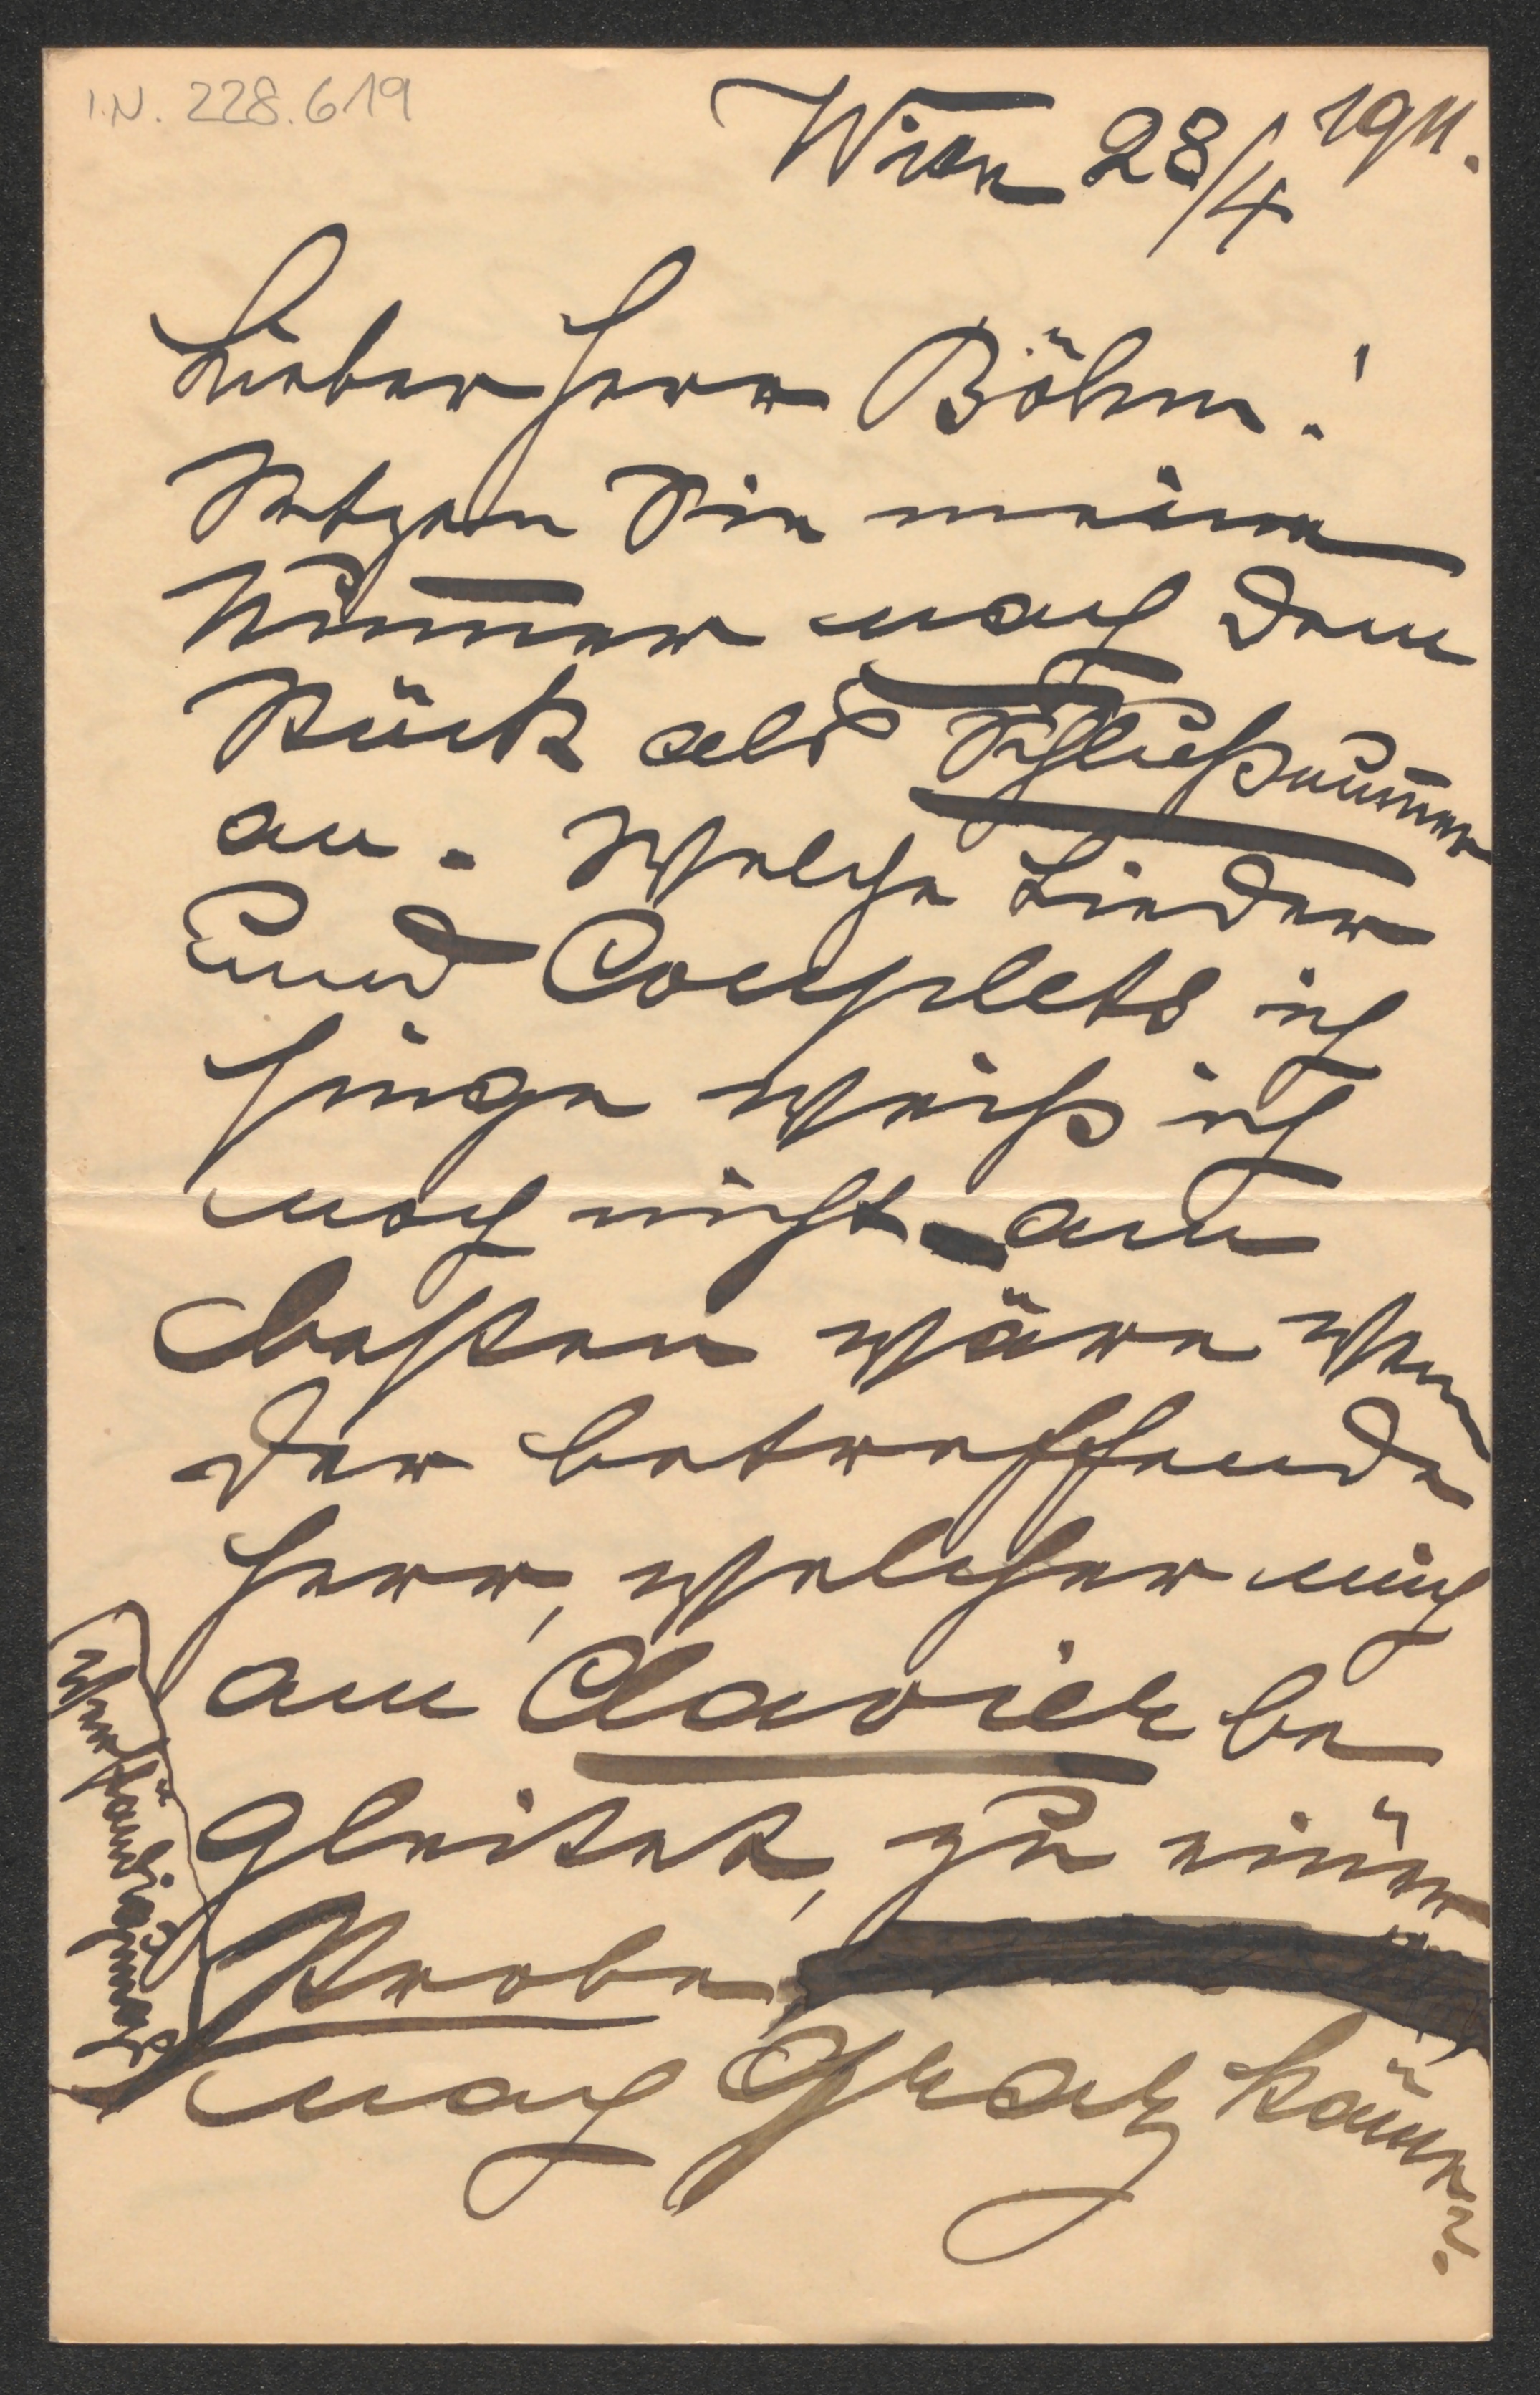 I.N. 228.619
Wien 28/4 1911.
Lieber Herr Böhm!
Setzen Sie meine
Num̅er nach dem
Stück als Schlußnum̅er
an. Welche Lieder
und Couplets ich
singe weiß ich
noch nicht – am
besten wäre wen̅
der betreffende
Herr, welcher mich
am Clavier be
gleitet, zu einer
Verständigungs
Probe,
nach Graz käme?